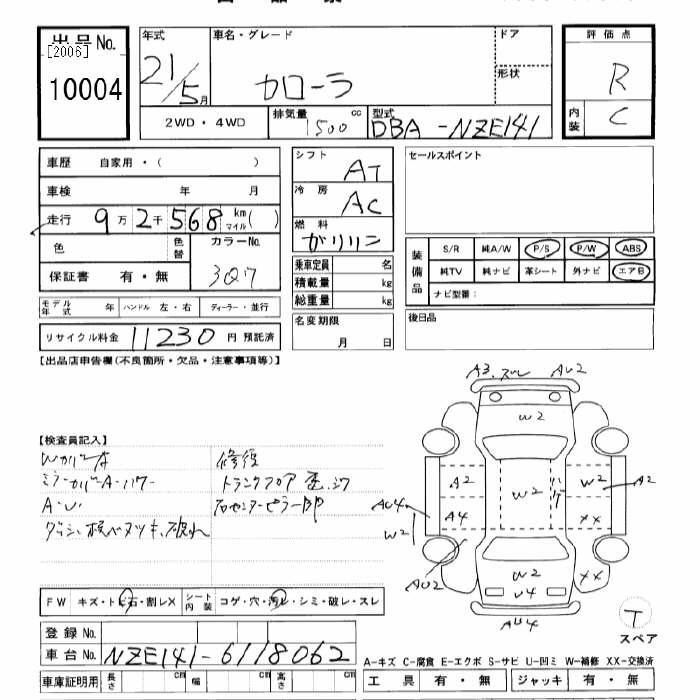 出品No.
[2006]
10004
年式
21/5月
車名・グレード
カローラ
ドア
形状
評価点
R
内装
C
2WD・4WD
排気量
1500 cc
型式
DBA-NZE141
車歴 自家用・( )
車検 年 月
走行 9万2千568 km マイル( )
色
色替
カラーNo.
3Q7
保証書 有・無
モデル年式 年 ハンドル 左・右 ディーラー・並行
リサイクル料金 11230 円 預託済
シフト
AT
冷房
AC
燃料
ガソリン
乗車定員 名
積載量 kg
総重量 kg
名変期限
月 日
セールスポイント
装備品
S/R 純A/W P/S P/W ABS
純TV 純ナビ 革シート 外ナビ エアB
ナビ型番:
後日品
【出品店申告欄(不良箇所・欠品・注意事項等)】
【検査員記入】
WカバーA
ミラーカバーA・バワー
A・U
修復
トランクフロア
右センターピラー
FW キズ・トビ石・割レX
シート内装 コゲ・穴・汚レ・シミ・破レ・スレ
登録No.
車台No. NZE141-6118062
車庫証明用 長さ cm 幅 cm 高さ cm
A3.ズレ
AU2
W2
A2
W2
W2
ハゲ
A2
AU4
A4
XX
W2
AU2
W2
U4
XX
AU4
T
スペア
A-キズ C-腐食 E-エクボ S-サビ U-凹ミ W-補修 XX-交換済
工具 有・無 ジャッキ 有・無